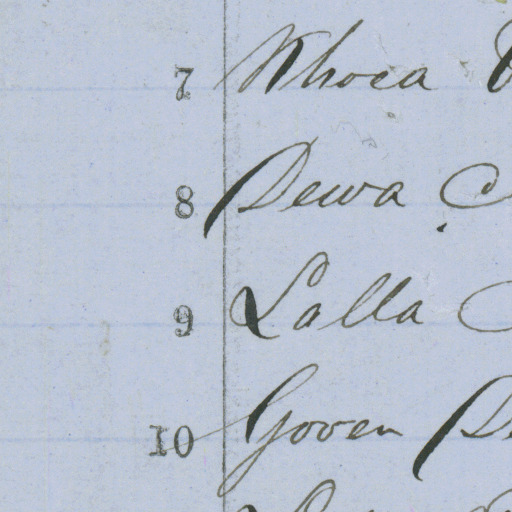 7 Khoca
8 Dewa
9 Lalla
10 Goven